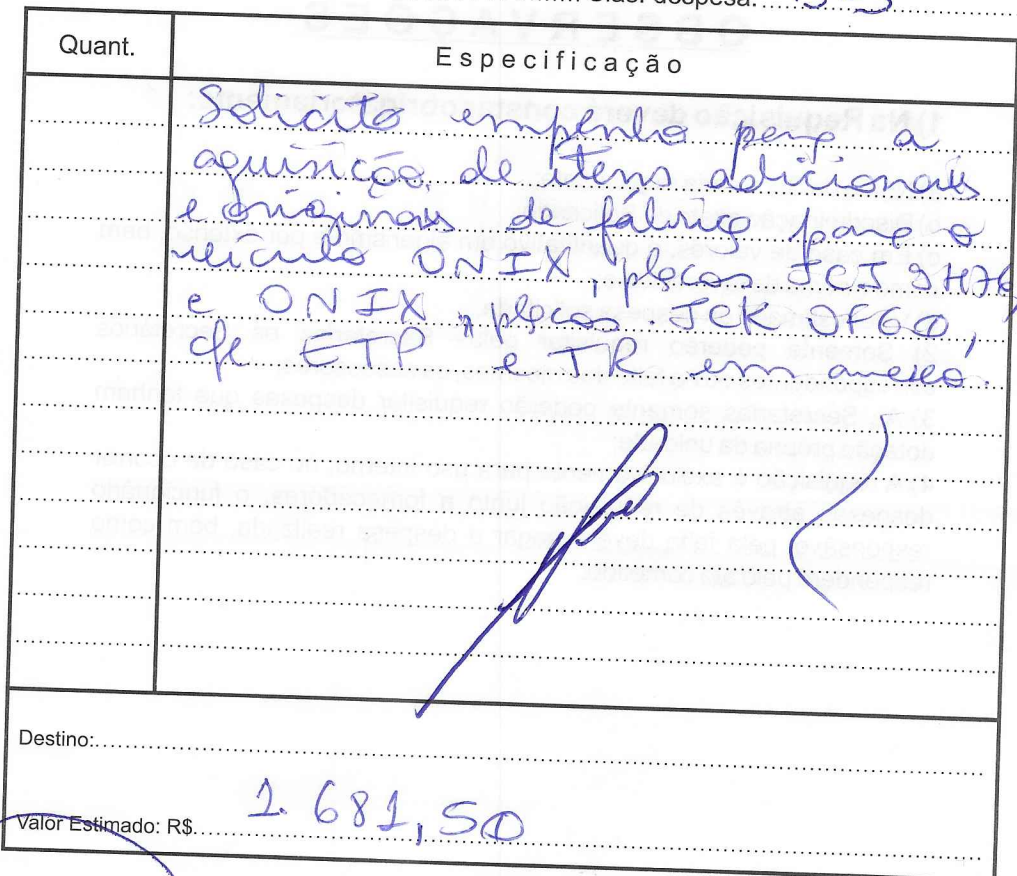 Clas. despesa:
Quant.
Especificação
Solicito empenho para a
aquisição de itens adicionais
e originais de fábrica para o
veículo ONIX, placas JCJ 9H76
e ONIX, placas JCK 0F60,
cfe ETP e TR em anexo.
Destino:
Valor Estimado: R$ 1.681,50